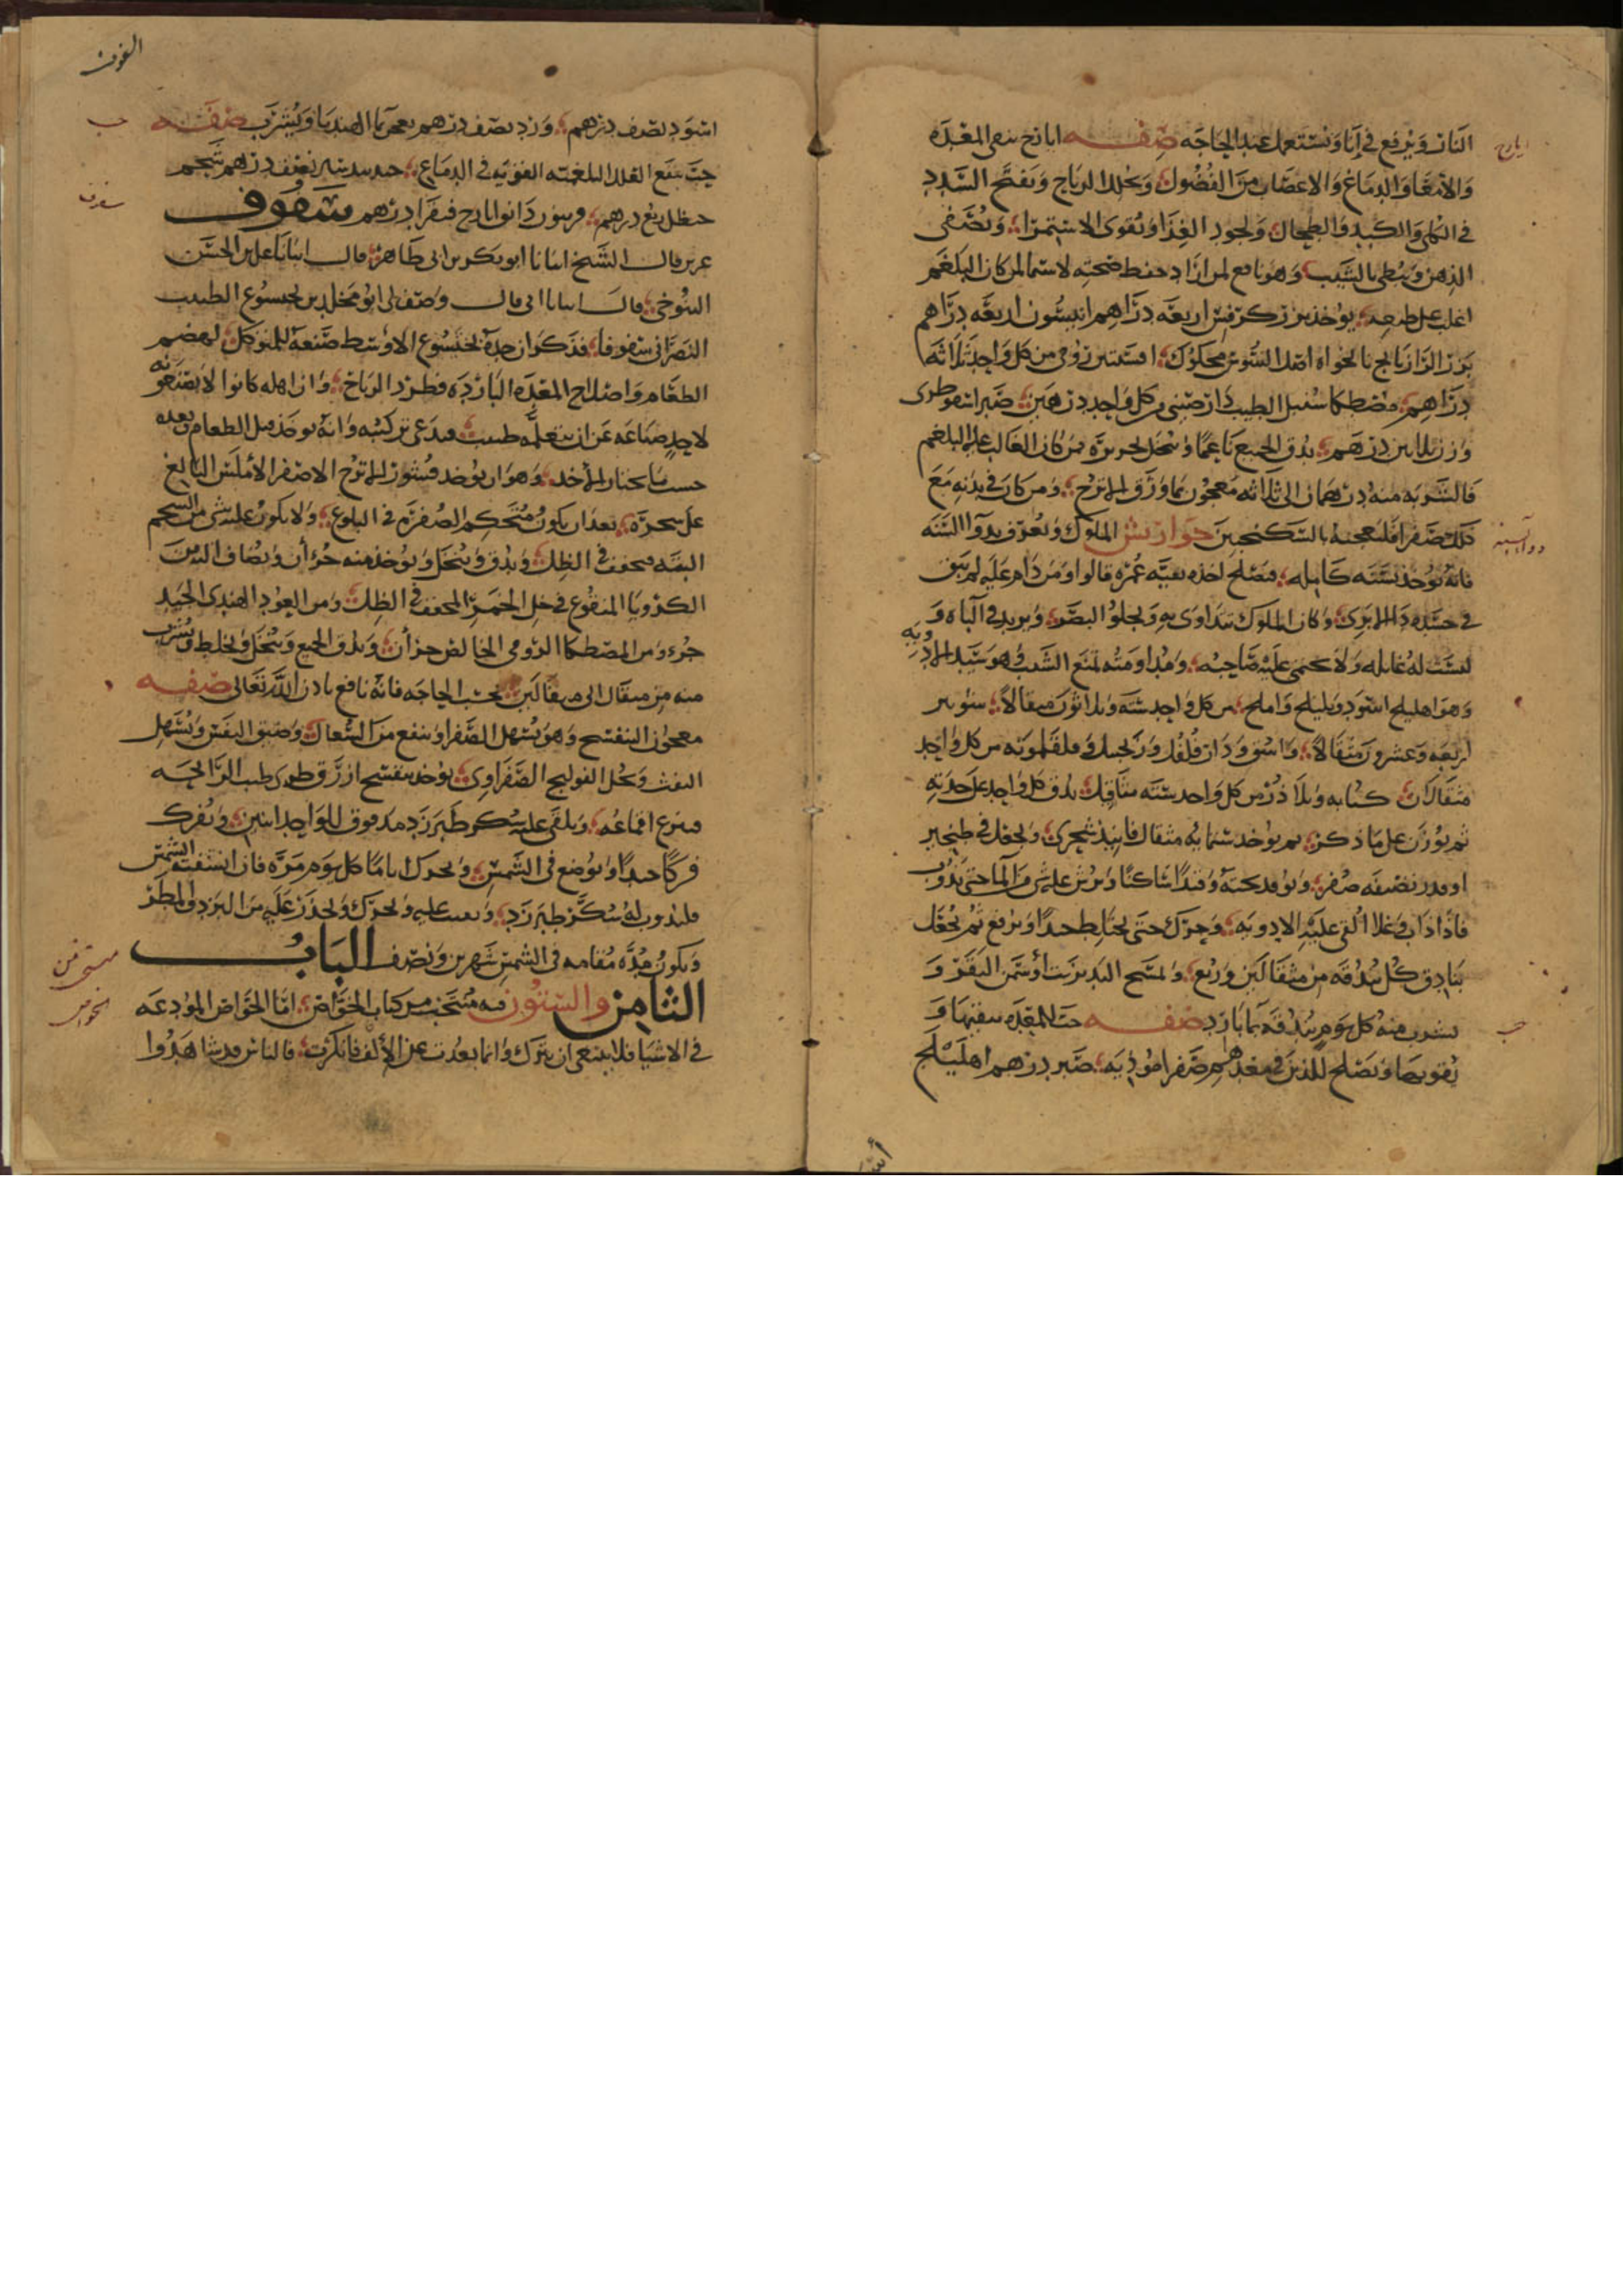 النار ويرفع في إنا ويستعمل عند الحاجه صفه ايارج ينقي المعده
ايارج
والامعا والدماغ والاعصاب من الفضول ويحلل الرياح ويفتح السدد
في الكلى والكبد والطحال ويجود الغذا ويقوى الاستمرا ويصفى
الذهن ويبطي بالشيب وهو نافع لمن اراد حفظ صحته لاسيما لمن كان البلغم
اغلب على طبعه يوخذ بزر كرفس اربعه دراهم انيسون اربعه دراهم
بزر الرازيانج نانخواه اصل السوس محكوك افسنتين رومي من كل واحد ثلاثه
دراهم مصطكا سنبل الطيب دارصيني من كل واحد درهمين صبر اسقوطرى
وزن ثلاثين درهم يدق الجميع ناعما وينخل بحريره من كان الغالب عليه البلغم
فالشربه منه درهمان الى ثلاثه معجون بماورق الاترج ومن كان في بدنه مع
ذلك صفرا فليعجنه بالسكنجبين جوارش الملوك ويعرف بدوا السنه
دوا السنه
فانه يوخذ سنه كامله فيصلح اخذه بقيه عمره قالوا ومن دام عليه لم يبق
في جسده دا الا برى وكان الملوك تتداوى به ويجلوا البصر ويزيد في الباه و
ليست له غايله ولا يحتمى عليه صاحبه ومداومته تمنع الشيب وهو سيد الادويه
وهو اهليلج اسود وبليلج واملج من كل واحد سته وثلاثون مثقالا شونيز
اربعه وعشرون مثقالا واشق ودار فلفل وزنجبيل وفلفلمونه من كل واحد
مثقالان كبابه وبلاذر من كل واحد سته مثاقيل يدق كل واحد على حدته
ثم يوزن على ما ذكر ثم يوخذ ستمايه مثقال فانيذ شجرى ويجعل في طنجير
او قدر نضيفه صفر ويوقد تحته وقيدا ساكنا ويرش عليه شى من الما حتى يذوب
فاذا ذاب وغلا القى عليه الادويه وحرك حتى يختلط جيدا ويرفع ثم يجعل
بنادق كل بندقه من مثقالين وربع وتمسح اليد بزيت أو سمن البقر و
يشرب منه كل يوم بندقه بما بارد صفه حب للمعده ينقيها و
حب
يقويها ويصلح للذين في معدهم صفرا موذيه صبر درهم اهليلج
اسود نصف درهم ورد نصف درهم يعجن بما الهندبا ويشرب صفه
حب
حب ينفع العلل البلغميه القويه في الدماغ نصف درهم شحم
حنظل ربع درهم فربيون دانق ايارج فيقرا درهم سفوف
سفوف
قال الشيخ انبانا ابو بكر بن ابى طاهر قال انبانا على بن الحسن
التنوخي قال انبانا ابى قال وصف لى ابو مخلد بن بختيسوع الطبيب
النصراني سفوفا فذكر ان جده بختيسوع الاوسط صنعه للمتوكل لهضم
الطعام واصلاح المعده البارده وطرد الرياح وان اهله كانوا لا يصفونه
لاحد صناعه عن ان يتعلمه طبيب فيدعى تركيبه وانه يوخذ قبل الطعام وبعده
حسب ما يختار الأخذ وهو ان يوخذ قشور الاترج الاصفر الأملس البالغ
على شجره بعد ان يكون مستحكم الصفره في البلوغ ولا يكون عليه شى من الشحم
البته فيجفف في الظل ويدق وينخل ويوخذ منه جزءان ويضاف اليه من
الكرويا المنقوع في خل الخمر المجفف في الظل ومن العود الهندى الجيد
جزء ومن المصطكا الرومى الخالص جزأن ويدق الجميع وينخل ويخلط ويشرب
منه من مثقال الى مثقالين بحسب الحاجه فانه نافع باذن الله تعالى صفه
معجون البنفسج وهو يسهل الصفرا وينفع من السعال وضيق النفس ويسهل
النفث ويحل القولنج الصفراوى يوخذ بنفسج ازرق طرى طيب الرايحه
منزوع اقماعه ويلقى عليه سكر طبرزد مدقوق للواحد اثنين ويفرك
فركا جيدا ويوضع في الشمس ويحرك اياما كل يوم مره فان انشفته الشمس
فليذوب له سكر طبرزد ويعب عليه ويحرك ويحذر عليه من البرد والمطر
ويكون مده مقامه في الشمس شهرين ونصف الباب
الثامن والستون فيه منتخب من كتاب الخواص امّا الخواص المودعه
الخواص
في الاشيا فلا ينبغى ان تترك وانما بعدت عن الألف فانكرت فالناس قد شاهدوا